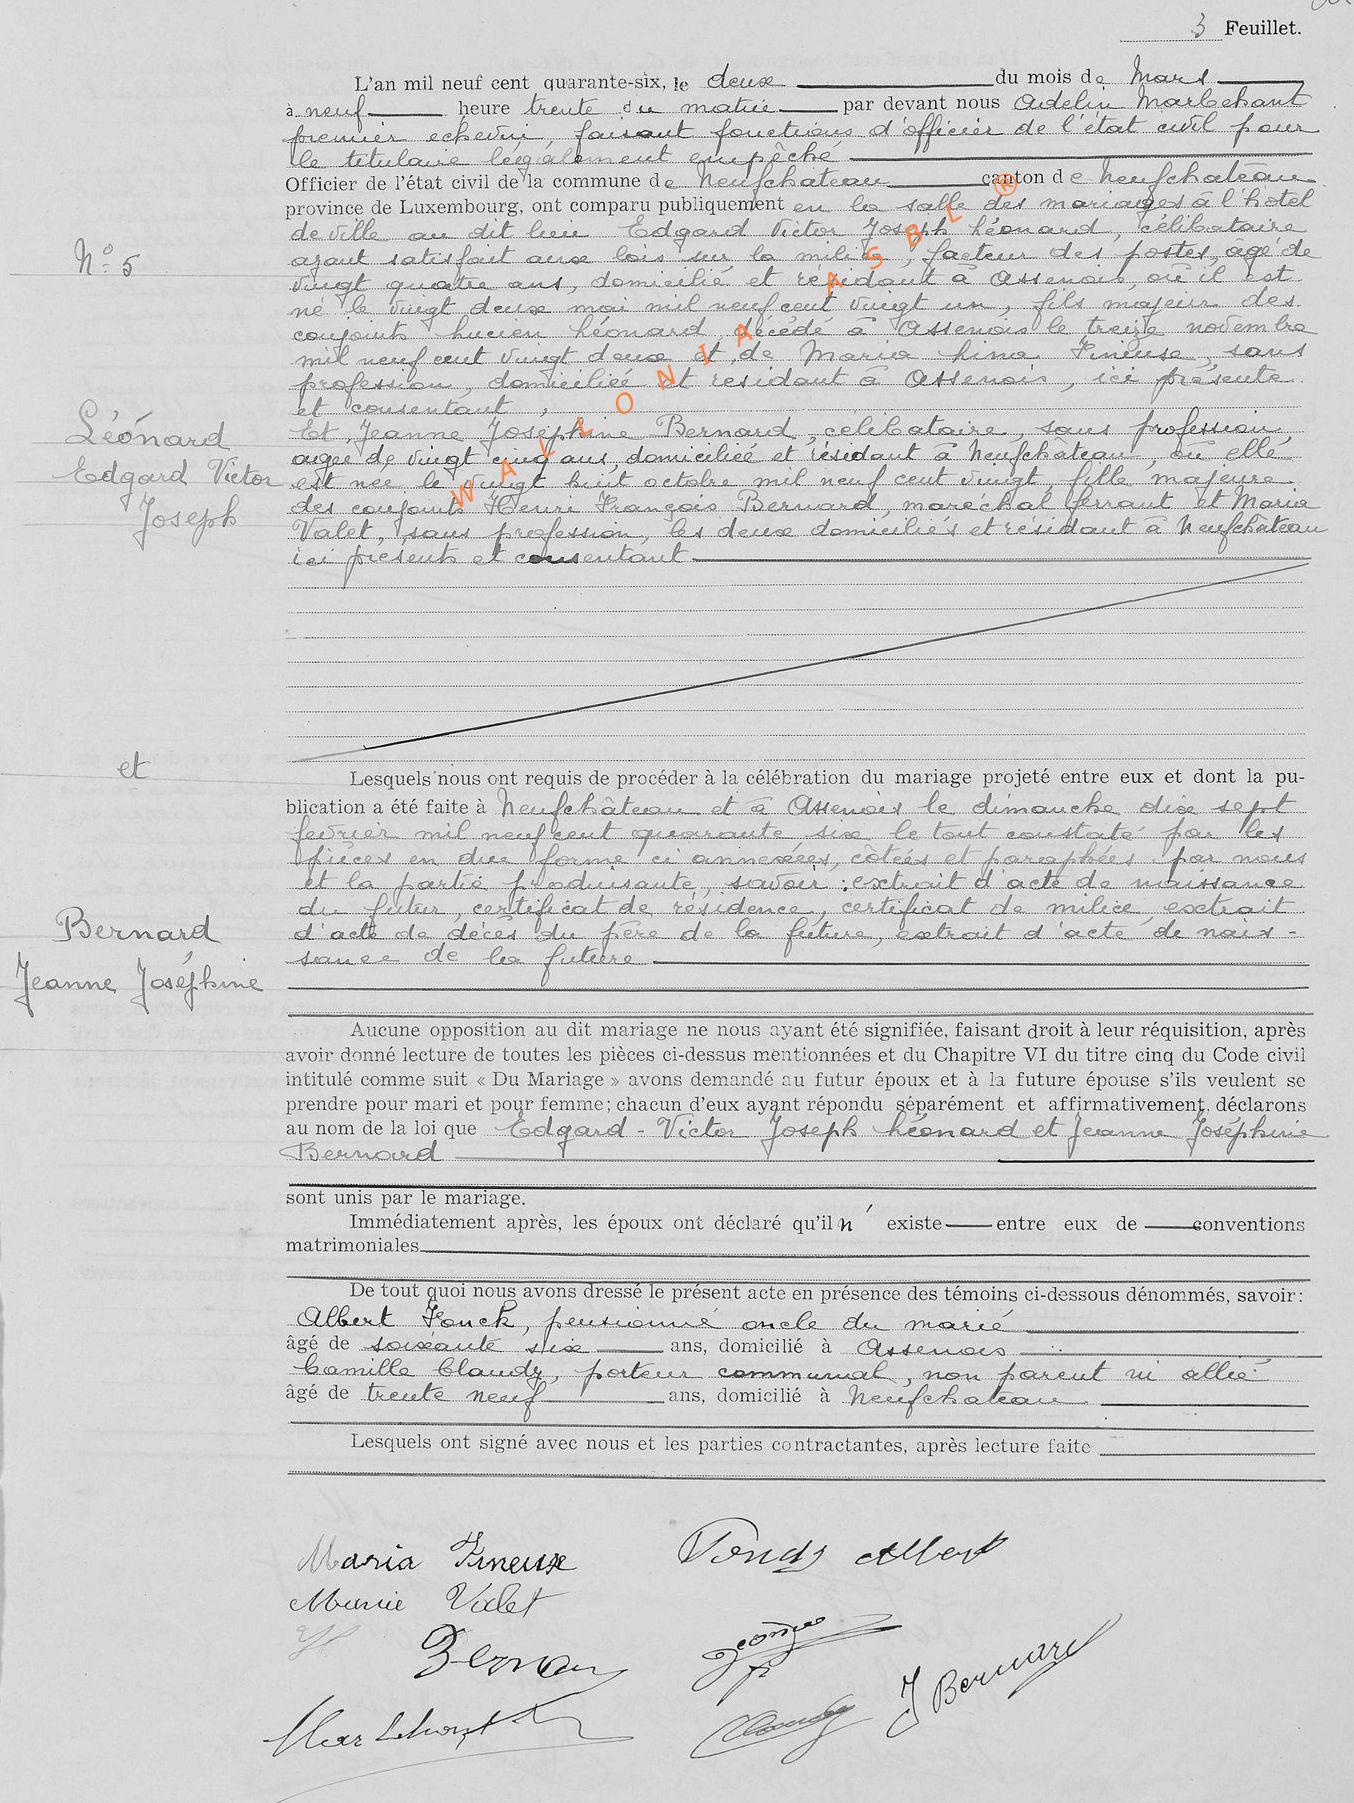 3 Feuillet.
L'an mil neuf cent quarante-six, le deux du mois de Mars
à neuf heure trente du matin par devant nous Adelin Marlehant
premier echevin, faisant fonctions d'officier de l'état civil pour
le titulaire légalement empêché
Officier de l'état civil de la commune de Neufchateau canton de Neufchâteau
province de Luxembourg, ont comparu publiquement en la salle des mariages à l'hotel
de ville au dit lieu Edgard Victor Joseph Léonard, célibataire
ayant satisfait aux lois sur la milice, facteur des postes, âgé de
vingt quatre ans, domicilié et résidant à Assenois, où il est
né le vingt deux mai mil neuf cent vingt un, fils majeur des
conjoints Lucien Léonard, décédé à Assenois le treize novembre
mil neuf cent vingt deux et de Maria Lina Fineuse, sans
profession, domiciliée et residant à Assenois, ici présente
et consentant,
Et Jeanne Joséphine Bernard, célibataire, sans profession,
agée de vingt cinq ans, domiciliée et résidant à Neufchâteau, où elle
est née le vingt huit octobre mil neuf cent vingt, fille majeure
des conjoints Henri François Bernard, maréchal ferrant et Maria
Valet, sans profession, les deux domiciliés et résidant à Neufchâteau
ici presents et consentant
N° 5
Léonard
Edgard Victor
Joseph
et
Bernard
Jeanne Joséphine
WALLONIA ASBL ®
Lesquels nous ont requis de procéder à la célébration du mariage projeté entre eux et dont la pu-
blication a été faite à Neufchâteau et à Assenois le dimanche dix sept
fevrier mil neuf cent quarante six le tout constaté par les
pièces en due forme ci annexées, côtées et paraphées par nous
et la partie produisante, savoir : extrait d'acte de naissance
du futur, certificat de résidence, certificat de milice, extrait
d'acte de décès du père de la future, extrait d'acte de nais-
sance de la future
Aucune opposition au dit mariage ne nous ayant été signifiée, faisant droit à leur réquisition, après
avoir donné lecture de toutes les pièces ci-dessus mentionnées et du Chapitre VI du titre cinq du Code civil
intitulé comme suit « Du Mariage » avons demandé au futur époux et à la future épouse s'ils veulent se
prendre pour mari et pour femme; chacun d'eux ayant répondu séparément et affirmativement, déclarons
au nom de la loi que Edgard - Victor Joseph Léonard et Jeanne Joséphine
Bernard
sont unis par le mariage.
Immédiatement après, les époux ont déclaré qu'il n' existe entre eux de conventions
matrimoniales
De tout quoi nous avons dressé le présent acte en présence des témoins ci-dessous dénommés, savoir:
Albert Fonck, pensionné oncle du marié
âgé de soixante six ans, domicilié à Assenois
Camille Claudy, porteur communal, non parent ni allié
âgé de trente neuf ans, domicilié à Neufchateau
Lesquels ont signé avec nous et les parties contractantes, après lecture faite
Maria Fineuse
Albert
Marie Valet
Bernard
J Bernard
Claudy